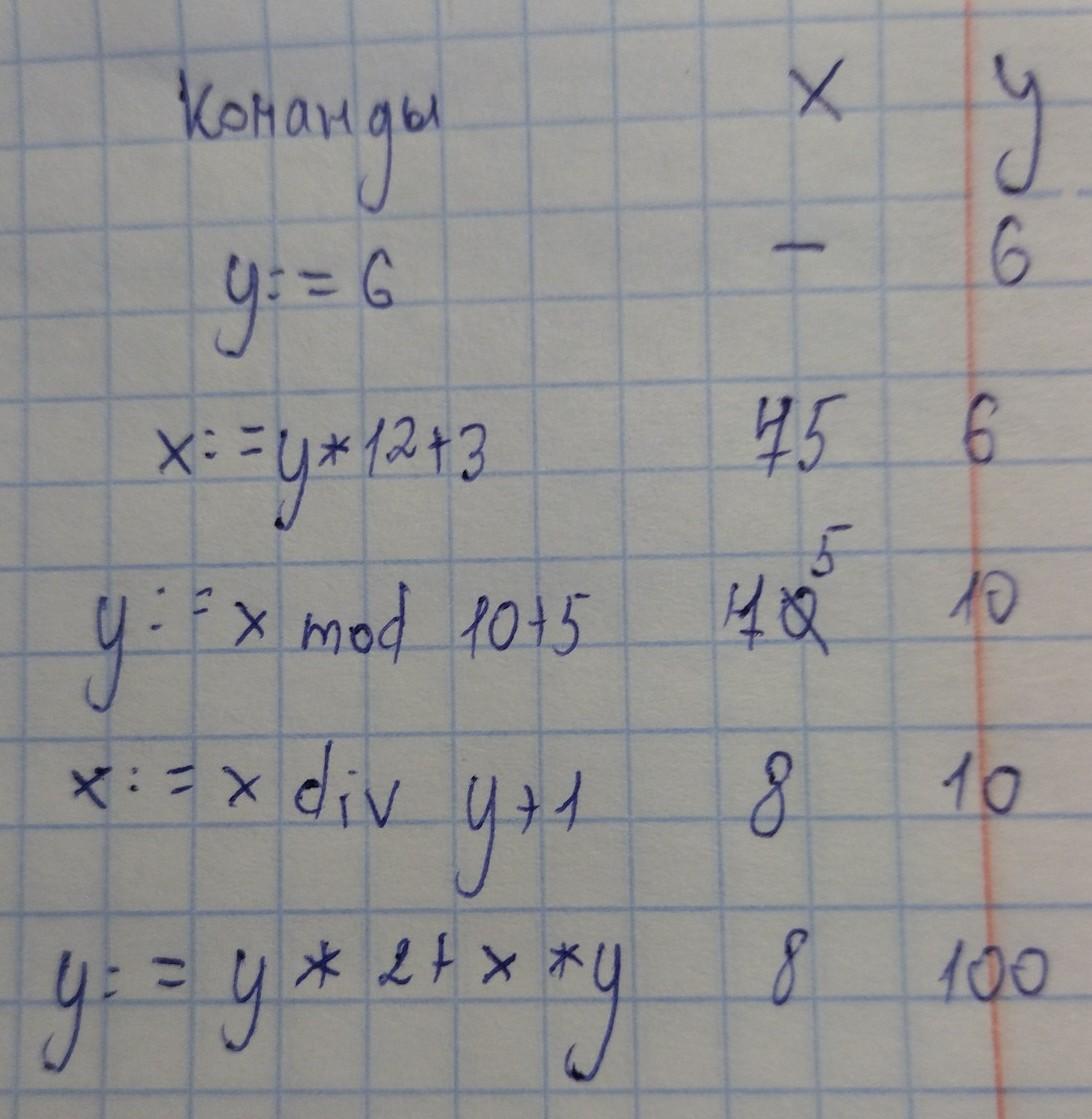 Команды x y
y:=6 — 6
x:=y*12+3 75 6
5
y:=x mod 10+5 7 10
x:=x div y+1 8 10
y:=y*2+x*y 8 100